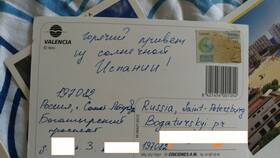 VALENCIA
Горячий привет
из солнечной
Испании!
197022
Россия, Санкт-Петер
Богатырский
проспект
3
Russia, Saint-Petersburg
Bogatyrskyi pr
197022
EDICIONES A.M.